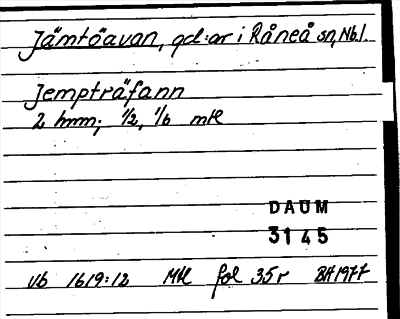 Jämtöavan, gd:ar i Råneå sn, Nb.l.
Jempträfann
2 hmn; 1/2, 1/6 mtl
DAUM
3145
Vb 1619:12 Mtl fol 35r BH 1977